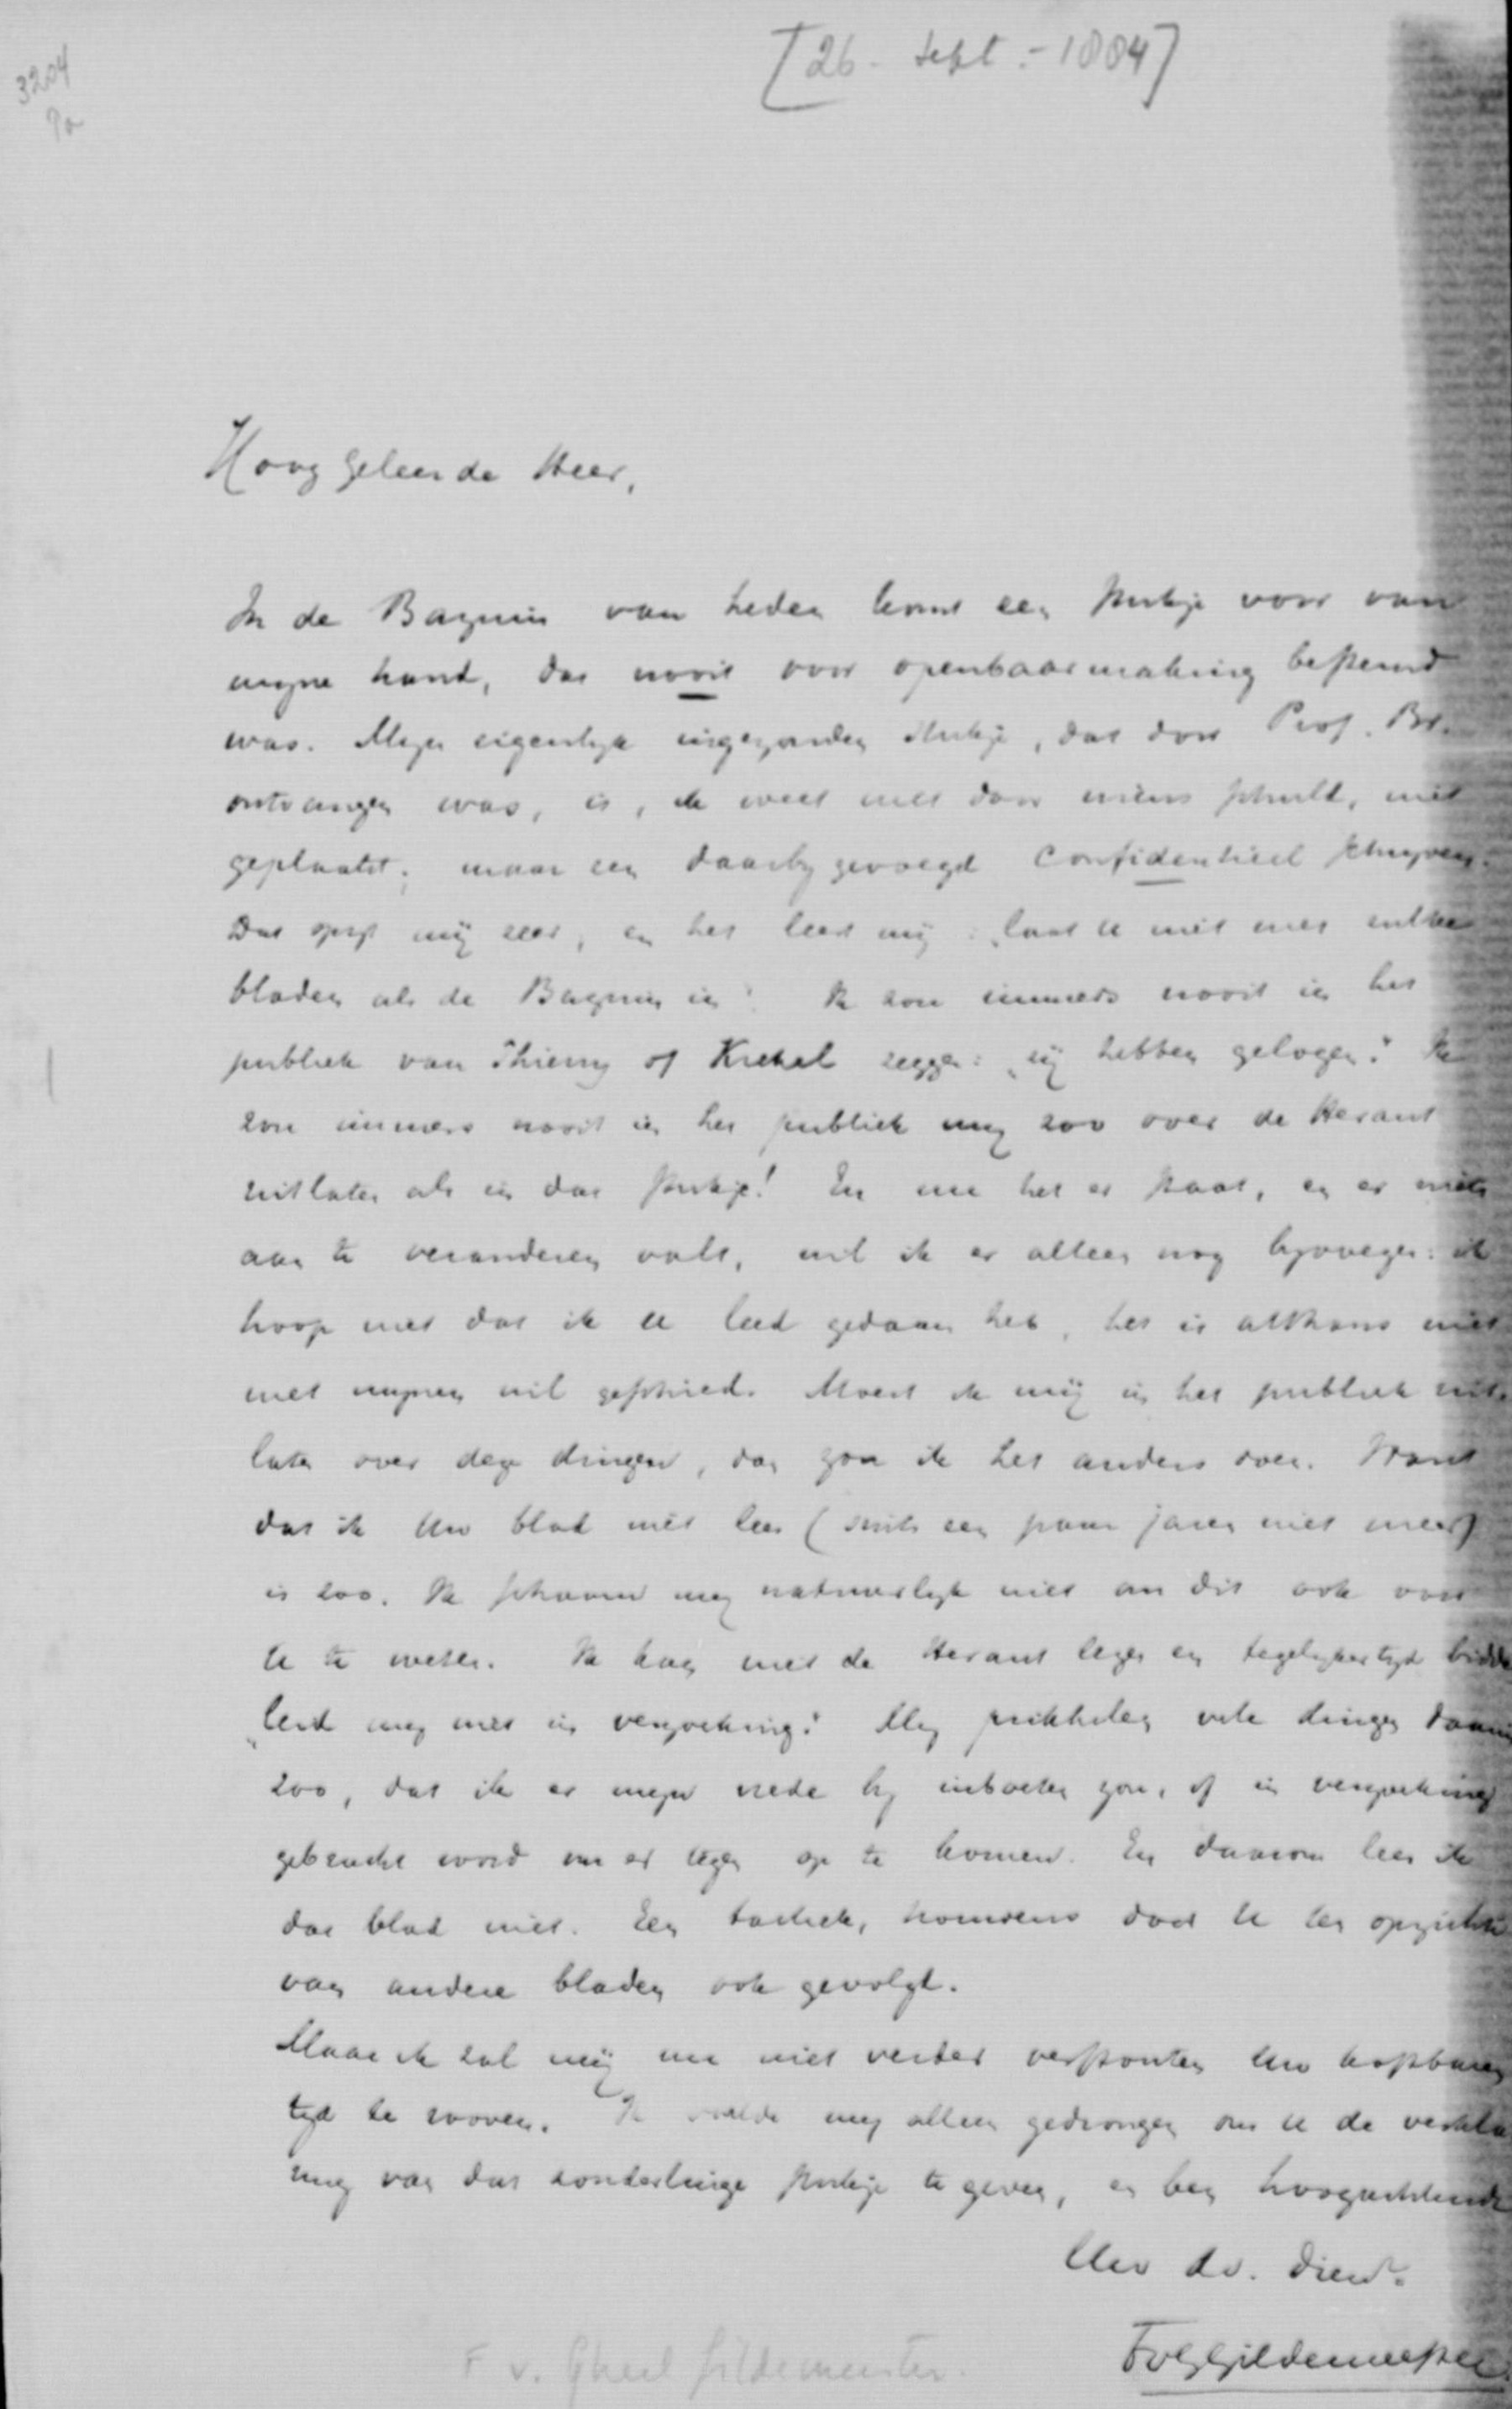 3204
9a
[26 - Sept. - 1884]
Hooggeleerde Heer,
In de Bazuin van heden komt een stukje voor van
mijne hand, dat nooit voor openbaarmaking bestemd
was. Mijn eigenlyk ingezonden stukje, dat door Prof. Bv.
ontvangen was, is, ik weet niet door wiens schuld, niet
geplaatst; maar een daarby gevoegd confidentieel schryven.
Dat spyt mij zeer, en het leert mij: „laat u niet met zulke
bladen als de Bazuin in". Ik zou immers nooit in het
publiek van Thiemy of Krekel zeggen: „zij hebben gelogen." Ik
zou immers nooit in het publiek mij zoo over de Heraut
uitlaten als in dat stukje! En nu het er staat, en er niets
aan te veranderen valt, wil ik er alleen nog byvoegen: ik
hoop niet dat ik u leed gedaan heb, het is althans niet
met mynen wil geschied. Moest ik mij in het publiek uit-
laten over deze dingen, dan zou ik het anders doen. Want
dat ik Uw blad niet lees (sints een paar jaren niet meer)
is zoo. Ik schaam mij natuurlyk niet om dit ook voor
U te weten. Ik kan niet de Heraut lezen en tegelykertyd bidden
„leid mij niet in verzoeking." My prikkelen vele dingen daarin
zoo, dat ik er myn vrede by inboeten zou, of in verzoeking
gebracht word om er tegen op te komen. En daarom lees ik
dat blad niet. Een tactiek, trouwens door U ten opzichte
van andere bladen ook gevolgd.
Maar ik zal mij nu niet verder verstouten Uw kostbaren
tyd te rooven. Ik voelde mij alleen gedrongen om U de verkla-
ring van dat zonderlinge stukje te geven, en ben hoogachtend
Uw dv. dien.
FvGhGildemeester
F v. Gheel Gildemeester.